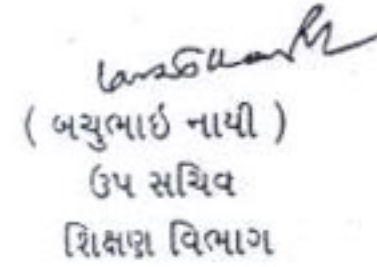 ( બચુભાઇ નાયી )
ઉપ સચિવ
શિક્ષણ વિભાગ